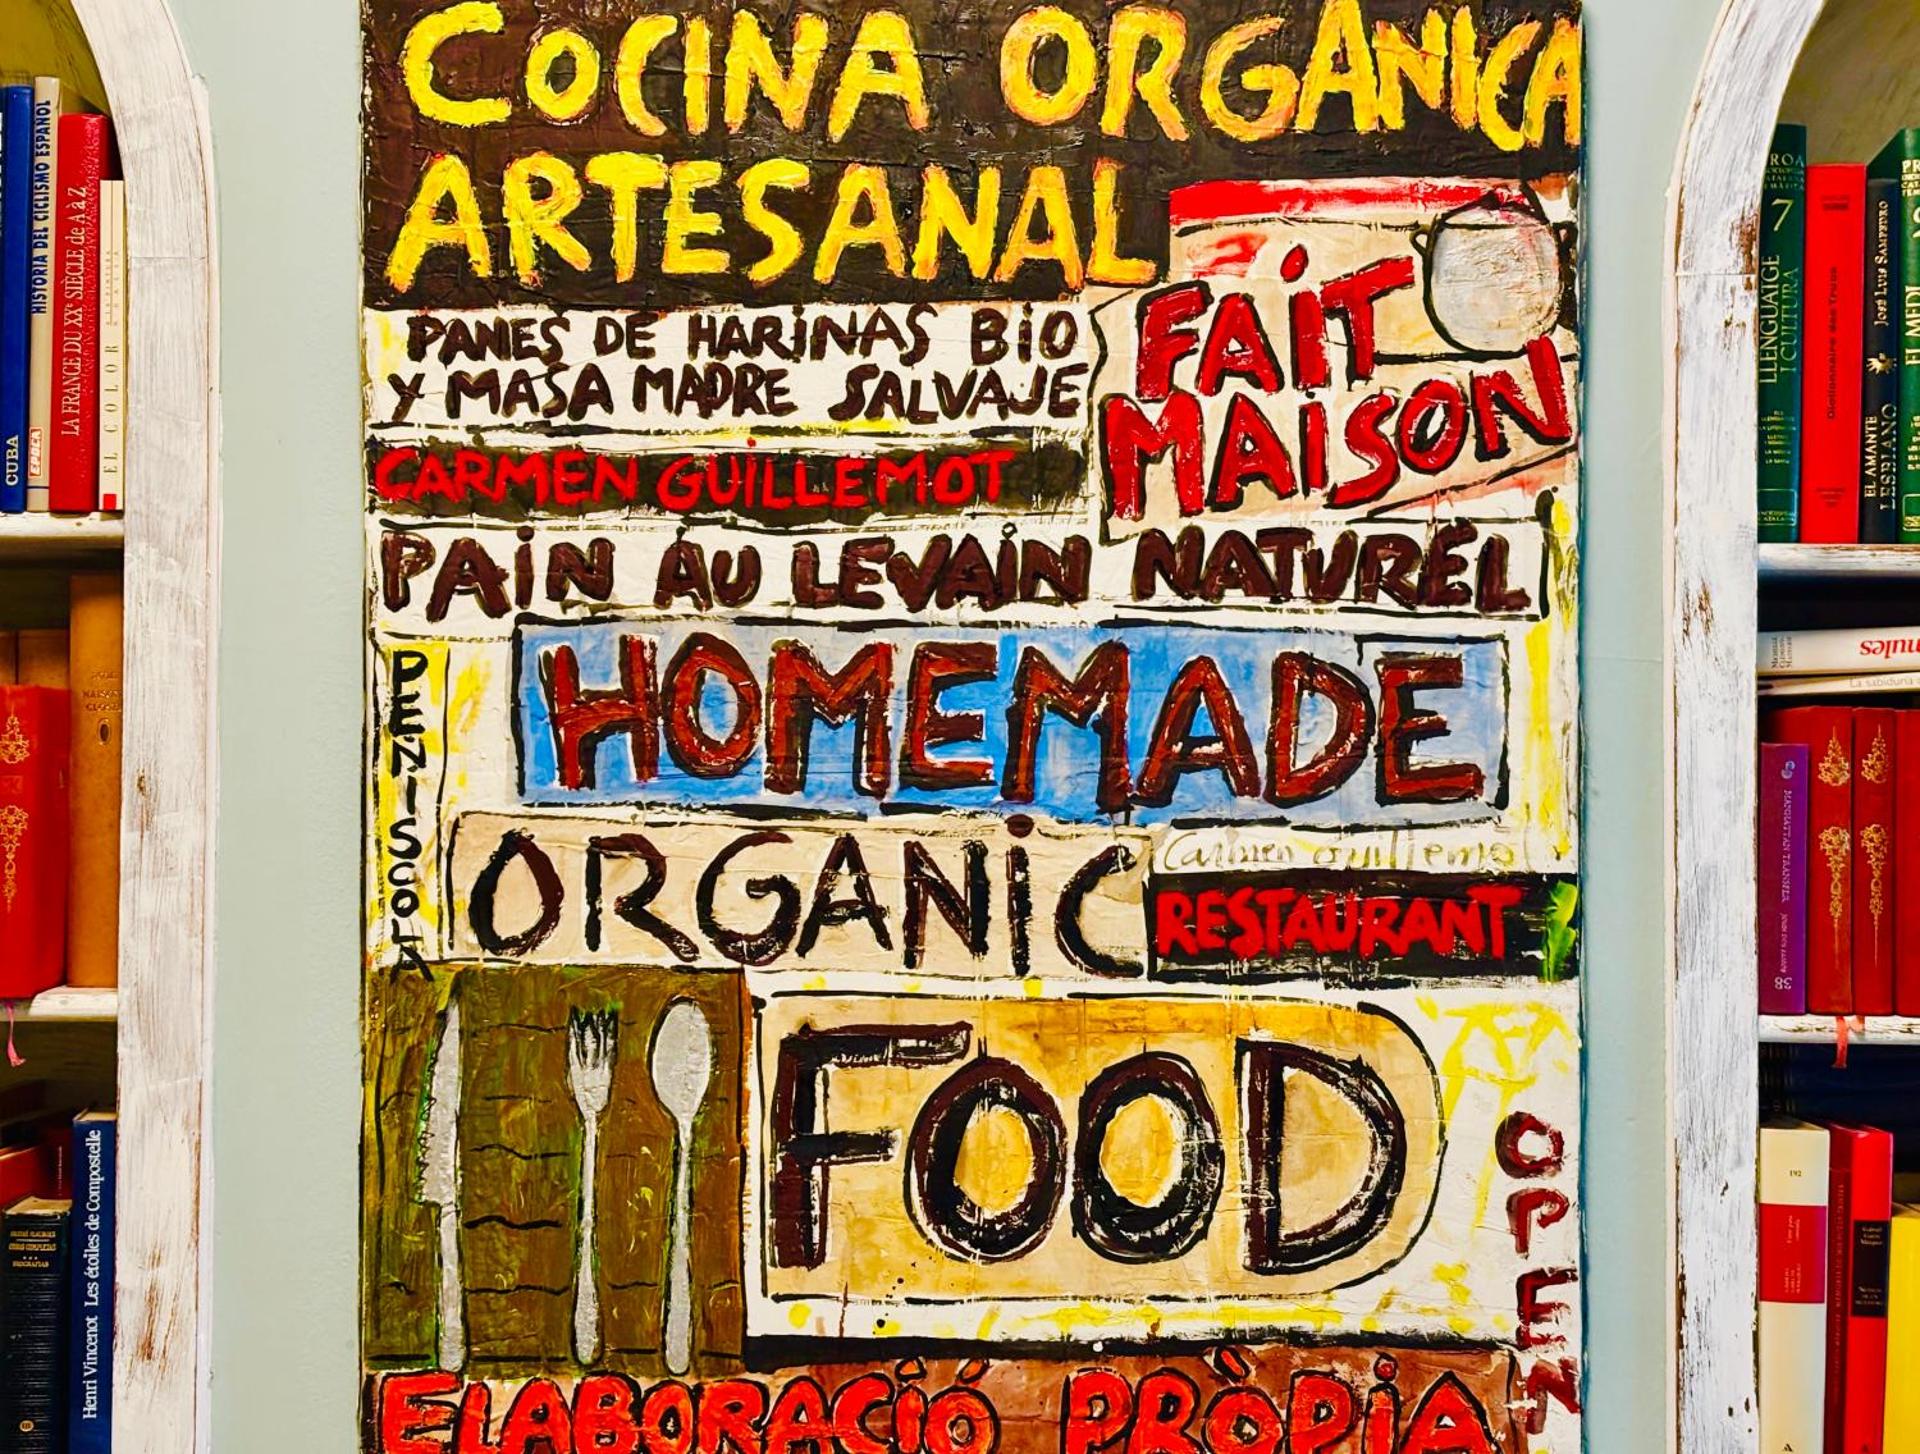 COCINA ORGANICA
ARTESANAL
FAiT
MAiSON
PANES DE HARiNAS BiO
Y MASA MADRE SALVAJE
CARMEN GUiLLEMOT
PAiN AU LEVAiN NATUREL
PENISCOLA
HOMEMADE
ORGANiC
Carmen Guillemo
RESTAURANT
FOOD
OPEN
ELABORACiÓ PRÒPiA
CUBA
HISTORIA DEL CICLISMO ESPAÑOL
EPOCA
LA FRANCE DU XXe SIÈCLE de A à Z
EL COLOR
Henri Vincenot Les étoiles de Compostelle
7
LLENGUATGE
I CULTURA
José Luis SAMPEDRO
EL AMANTE
LESBIANO
EL MEDI
MANHATTAN TRANSFER
38
192